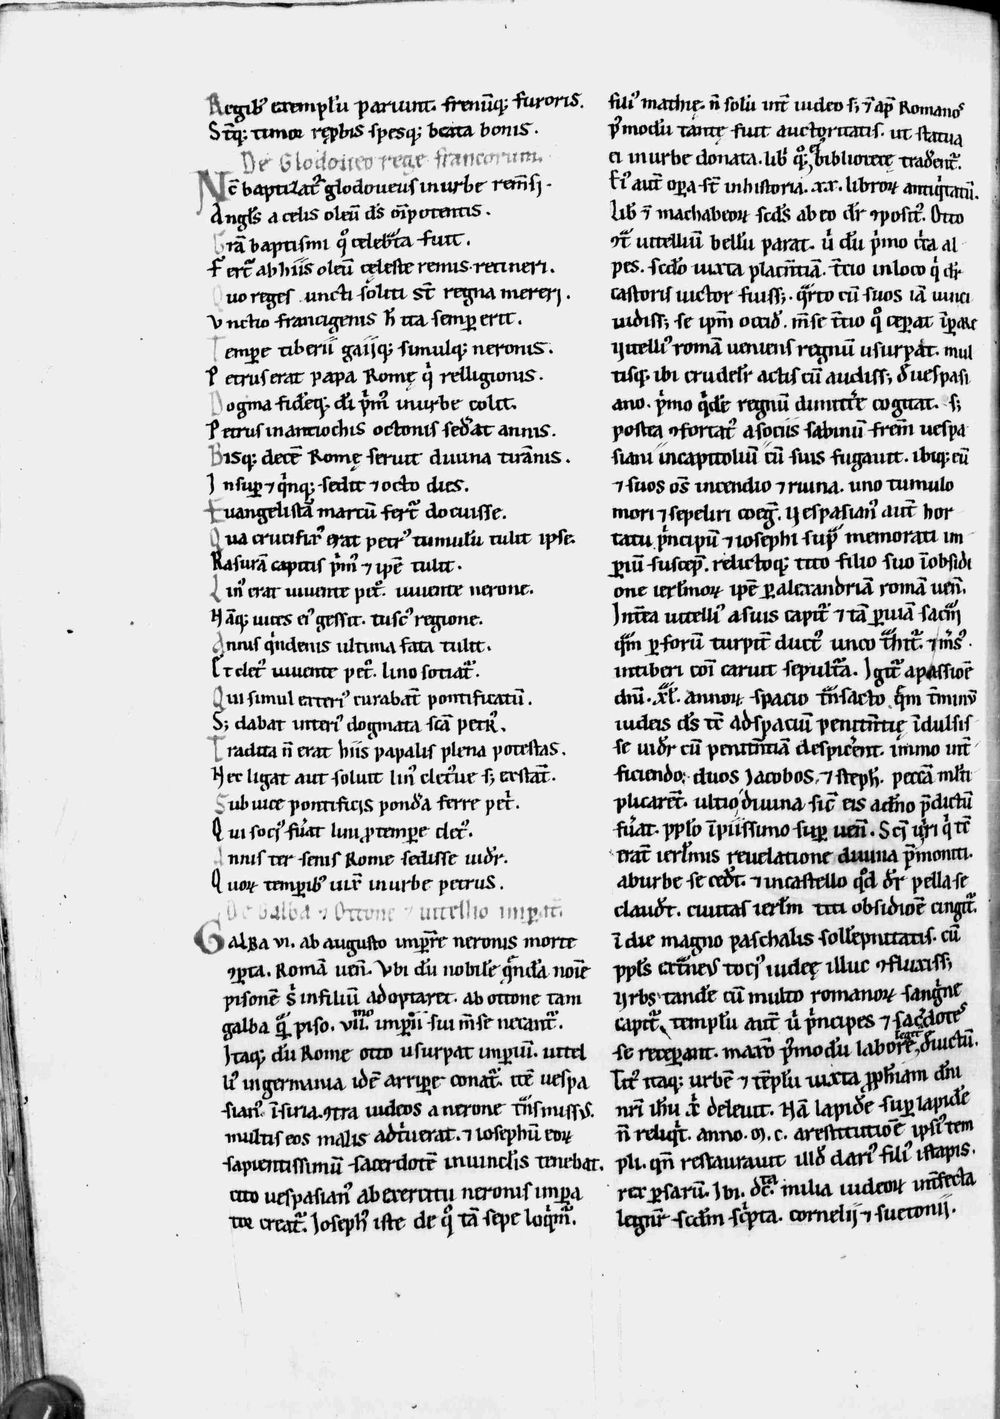 Regib᷒ exemplu᷒ pariunt. frenu᷒q; furoris.
St᷒q; timor rep᷒bis spesq; beata bonis.
De Glodoueo rege francorum.
Nc̄ baptizat᷒ glodoueus in urbe rem̄si.
Angl᷒s a celis oleū ds̄ om̄ipotentis.
Gr̄a baptismi qͦ celebr̄ta fuit.
Fert᷒ ab hiis oleū celeste remis retineri.
Quo reges uncti soliti st̄ regna mereri.
Vnctio francigenis h̄ ita semper erit.
Tempore tiberii gaijq; simulq; neronis.
Petrus erat papa Romę qi relligionis.
Dogma fideq; di pimū in urbe colit.
Petrus in antiochis octonis sedat annis.
Bisq; decē Romę seruit diuina tirannis.
Insup ⁊ qinq; sedit ⁊ octo dies.
Euangelistā marcū fert᷒ docuisse.
Qua crucifix᷒ erat petr᷒ tumulū tulit ipse.
Rasurā capitis pim᷒ ⁊ ipē tulit.
Lin᷒ erat uiuente pet᷒. uiuente nerone.
Nāq; uices ei᷒ gessit. tusc᷒ regione.
Annis qindenis ultima fata tulit.
Et clet᷒ uiuente pet᷒. lino sotiat᷒.
Qui simul exteri᷒ curabāt pontificatū.
S; dabat interi᷒ dogmata sc̄a petr᷒.
Tradita n̄ erat hiis papalis plena potestas.
Nec ligat aut soluit lin᷒ cletꝰue s; exstāt.
Sub uice pontificis ponda ferre pet᷒.
Qui soci᷒ fuat lini ptempore clet᷒.
Annis ter senis Rome sedisse uidr̄.
Quoꝝ temporib᷒ uix᷒ in urbe petrus.
De Galba ⁊ Ottone ⁊ uitellio imperat᷒.
Galba vi. ab augusto imperr̄e neronis morte
ꝯperta. Romā uen̄. Vbi dū nobilē qendā noīe
pisonē si in filiū adoptaret. ab ottone tam
galba qm̄ piso. vii.mo imperii sui mēse necant᷒.
Itaq; dū Rome otto usurpat imperiū. uitel
li᷒ in germania idē arripere conat᷒. itē uespa
sian᷒. in siria. ꝯtra iudeos a nerone tn̄smissꝰ.
multis eos malis adtiuerat. ⁊ iosephū eoꝝ
sapientissimū sacerdotē in uinclis tenebat.
cito uespasian᷒ ab exercitu neronis impera
tor creat᷒. Joseph᷒ iste de qͦ tā sepe loqim᷒.
fili᷒ mathię. n̄ solū int᷒ iudeos s; ⁊ ap᷒ Romanos
pimodū tantę fuit auctoritatis. ut statua
ei in urbe donata. lib᷒ qͦ; bibliotecę tradent᷒.
Ei᷒ aut̄ opera st̄ in historia. xx. libroꝝ antiqitatū.
Lib᷒ ⁊ machabeoꝝ scds̄ ab eo dr̄ ꝯposit᷒. Otto
ꝯt᷒ uitelliū bellū parat. ū dū pimo cira al
pes. scdo iuxta placn̄tiā. tcio in loco qi dr̄
castoris uictor fuiss;. qarto cū suos iā uinci
uidiss; se ipm̄ occid᷒. mēse tcio qͦ ceperat imperare
Vitelli᷒ romā ueniens regnū usurpat. mul
tisq; ibi crudelir̄ actis cū audiss; d᷒ uespasi
ano. pimo qide regnū dimittre cogitat. s;
postea ꝯfortat᷒ a sociis sabinū frēm uespa
siani in capitoliū cū suis fugauit. ibiq; eū
⁊ suos om̄s incendio ⁊ ruina. uno tumulo
mori ⁊ sepeliri coeg᷒. Vespasian᷒ aut̄ hor
tatu pincipū ⁊ iosephi sup᷒ memorati im
periū suscep᷒. relictoq; tito filio suo in obsidi
one ierl̄moꝝ ipē per alexandriam romā uen̄.
Int̄ea uitelli᷒ a suis capit᷒ ⁊ tā per uiā sacm̄
qm̄ per forū turpit᷒ duct᷒ unco trahit᷒. ⁊ mss᷒.
in tiberi com̄i caruit sepultr̄a. Igit᷒ a passioē
dn̄i. xl. annoꝝ spacio tn̄sacto qm tminū
iudeis ds̄ tc̄ ad spaciū penitn̄tię indulsis
se uidr̄ cū penitn̄tiā despicent. immo int᷒
ficiendo. duos Jacobos. ⁊ steph᷒. pecc̄a m̄lti
plicarēt. ultio diuina sic̄ eis adhͦ p̄dictū
fuat. pplo impiissimo sup᷒ uen̄. Sci qri qi tc̄
erāt ierl̄mis reuelatione diuina pimoniti.
ab urbe se ced᷒t. ⁊ in castello qd dr̄ pella se
claud᷒t. ciuitas ierl̄m titi obsidioē cingit᷒.
in die magno paschalis sollepnitatis. cū
ppls̄ ext̄neus toci᷒ iudeę illuc ꝯfluxiss;
Vrbs tande cū multo romanoꝝ sangine
capit᷒. templū aut̄ ū pincipes ⁊ sacdotes
se receperant. maxo pimodū labore, d᷒uictū.
Tit᷒ itaq; urbē ⁊ tēplū iuxta pph̄iam dn̄i
nr̄i ih̄u x̄ deleuit. Nā lapidē sup᷒ lapidē
n̄ reliqit. anno. m̄. c. a restitutioē ipsi᷒ tem
pli. qn̄ restaurauit illd dari᷒ fili᷒ istapis.
rex persarū. Ibi. dcta. milia iudeoꝝ int̄fecta
legunt᷒ scdm scipta. cornelij ⁊ suetonij.